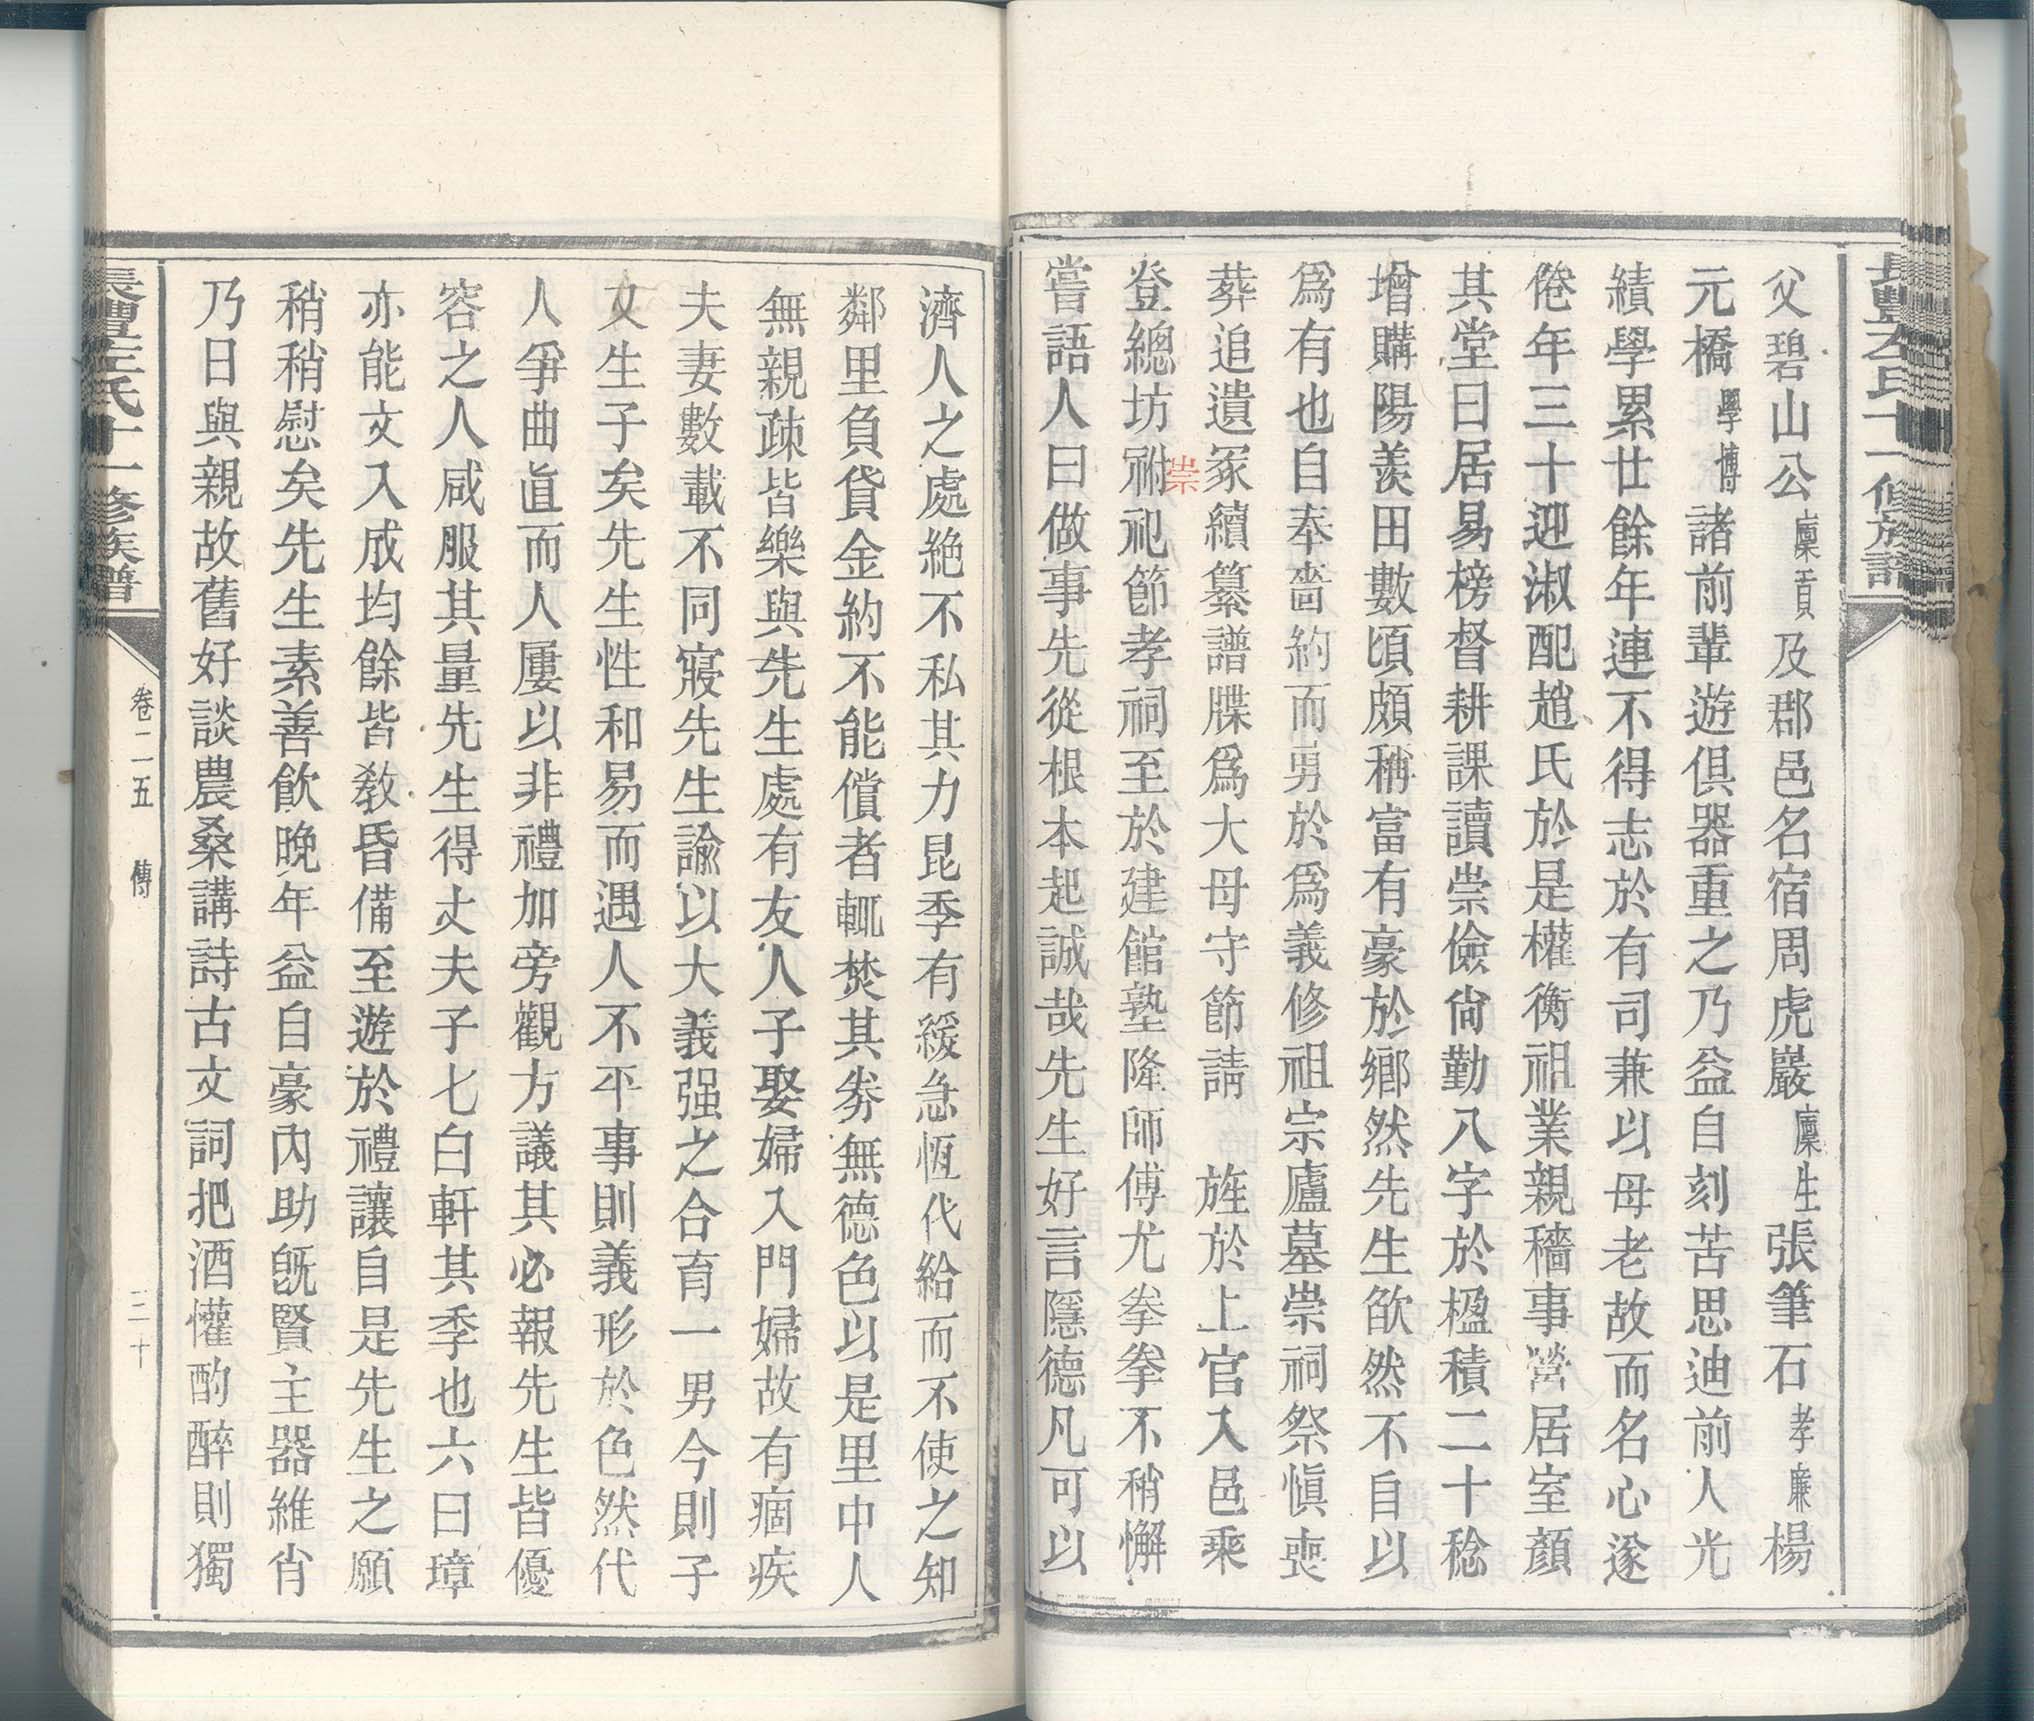 長豐左氏十一修族譜
父碧山公廩貢及郡邑名宿周虎巖廩生張筆石孝廉楊
元橋學博諸前輩遊俱器重之乃益自刻苦思迪前人光
績學累廿餘年連不得志於有司兼以母老故而名心遂
倦年三十迎淑配趙氏於是權衡祖業親穡事營居室顏
其堂曰居易榜督耕課讀崇儉尙勤八字於楹積二十稔
增購陽羨田數頃頗稱富有豪於鄉然先生欿然不自以
爲有也自奉嗇約而勇於爲義修祖宗廬墓崇祠祭愼喪
葬追遺冢續纂譜牒爲大母守節請 旌於上官入邑乘
登總坊祔祀節孝祠至於建館塾隆師傅尤拳拳不稍懈
崇
嘗語人曰做事先從根本起誠哉先生好言隱德凡可以
濟人之處絶不私其力昆季有緩急恆代給而不使之知
鄰里負貸金約不能償者輒焚其劵無德色以是里中人
無親疎皆樂與先生處有友人子娶婦入門婦故有痼疾
夫妻數載不同寢先生諭以大義强之合育一男今則子
又生子矣先生性和易而遇人不平事則義形於色然代
人爭曲直而人屢以非禮加旁觀方議其必報先生皆優
容之人咸服其量先生得丈夫子七白軒其季也六曰璋
亦能文入成均餘皆敎昏備至遊於禮讓自是先生之願
稍稍慰矣先生素善飮晚年益自豪內助旣賢主器維肖
乃日與親故舊好談農桑講詩古文詞把酒懽酌醉則獨
長豐左氏十一修族譜
卷二五 傳
三十